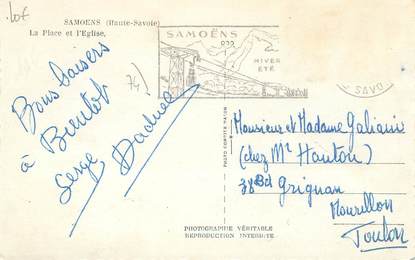 SAMOENS (Haute-Savoie)
La Place et l'Eglise.
SAMOËNS
HIVER
ÉTÉ
SAVO
74
Bons baisers
à Bientôt
Serge
PHOTO COMPTOIR MACON
Monsieur et Madame Galianie
(chez Mr Hauton)
38 Bd Grignan
Mourillon
Toulon
PHOTOGRAPHIE VÉRITABLE
REPRODUCTION INTERDITE